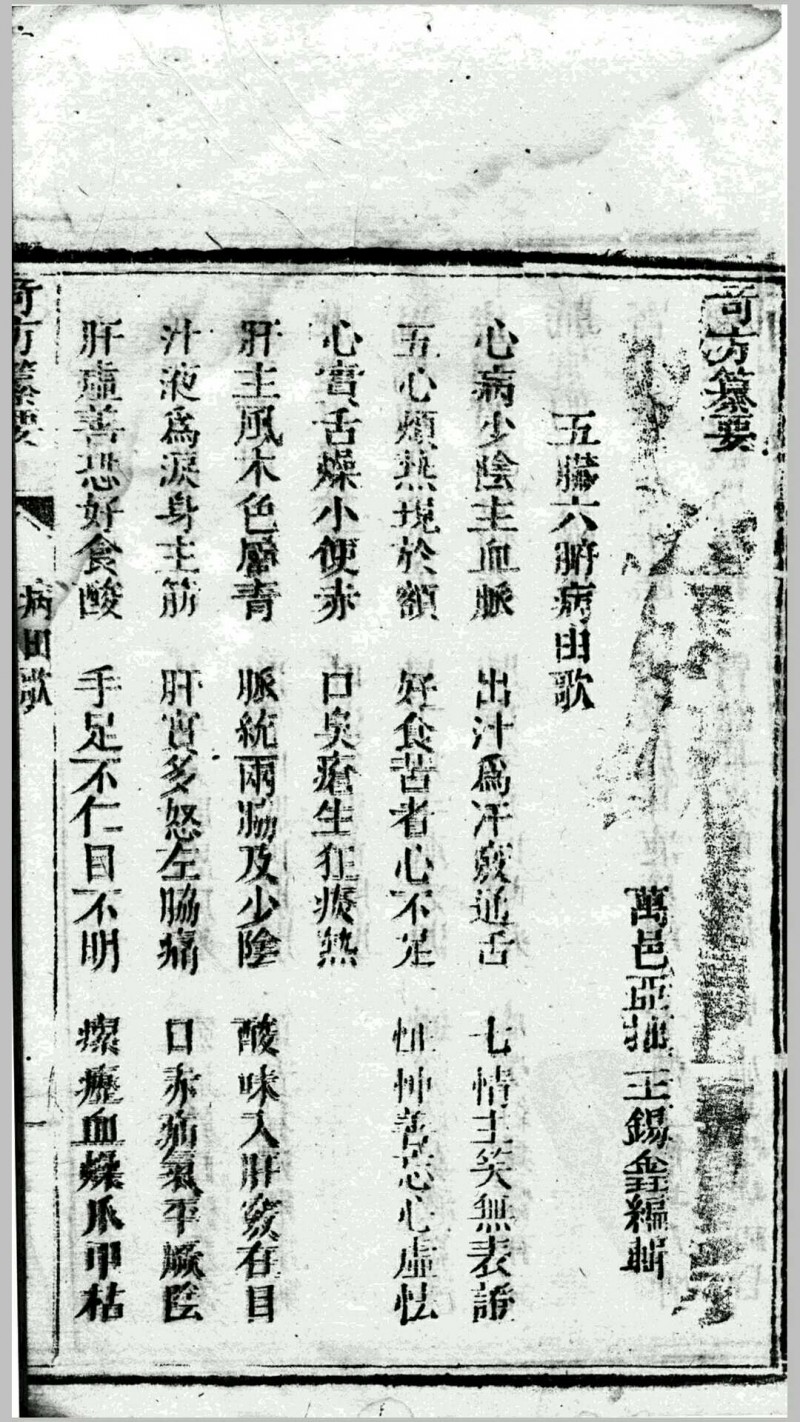 奇方纂要
萬邑亞拙王錫鑫編輯
五臟六腑病由歌
心病少陰主血脈 出汁為汗竅通舌 七情主笑無表證
五心煩熱現於額 好食苦者心不足 怔忡善忘心虛怯
心實舌燥小便赤 口臭瘡生狂癀熱
肝主風木色屬青 脈統兩脇及少陰 酸味入肝竅在目
汁液爲淚身主筋 肝實多怒左脇痛 口赤疝氣平厥陰
肝虛善恐好食酸 手足不仁目不明 瘰癧血燥爪甲枯
奇方纂要 病由歌